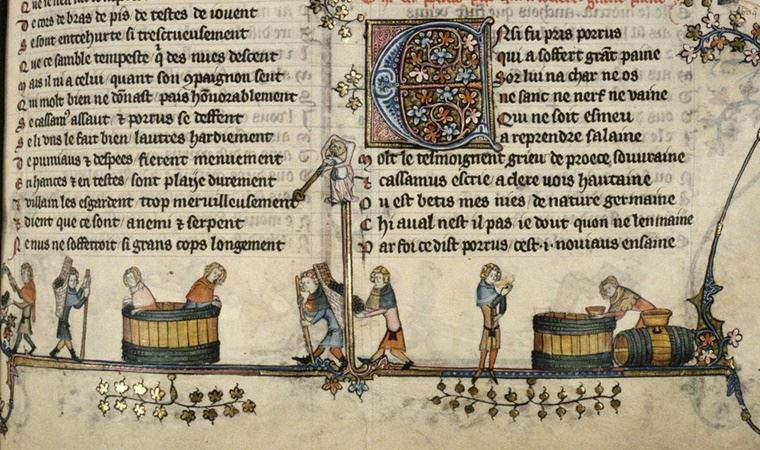 De cors de bras de pis de testes de iouent
Se sont entrehurte si trescrueusement
Que ce samble tempeste q̃ des nues descent
Mais il ni a celui quant son ꝯpaignon sent
Qui molt bien ne dõnast pais hõnorablement
Se cassamꝰ assaut ⁊ porrus se deffent
Se li uns le fait bien lautres hardiement
De pumiaus ⁊ despees fierent menuement
En hances ⁊ en testes sont plaije durement
Li villain les esgardent trop merueilleusement
Et dient que ce sont anemi ⁊ serpent
Nenus ne sofferroit si grans cops longement
Ensi fu pris porrus
qui a soffert grãt paine
Sor lui na char ne os
ne sanc ne nerf ne vaine
Qui ne soit esmeu
a reprendre salaine
Molt le tesmoignent grieu de proece souuraine
Et cassamus escrie a clere uois hautaine
Ou est betis mes nies de nature germaine
Chi aual nest il pas ie dout quon ne lenmaine
Par foi ce dist porrus cest .i. nouiaus ensaine